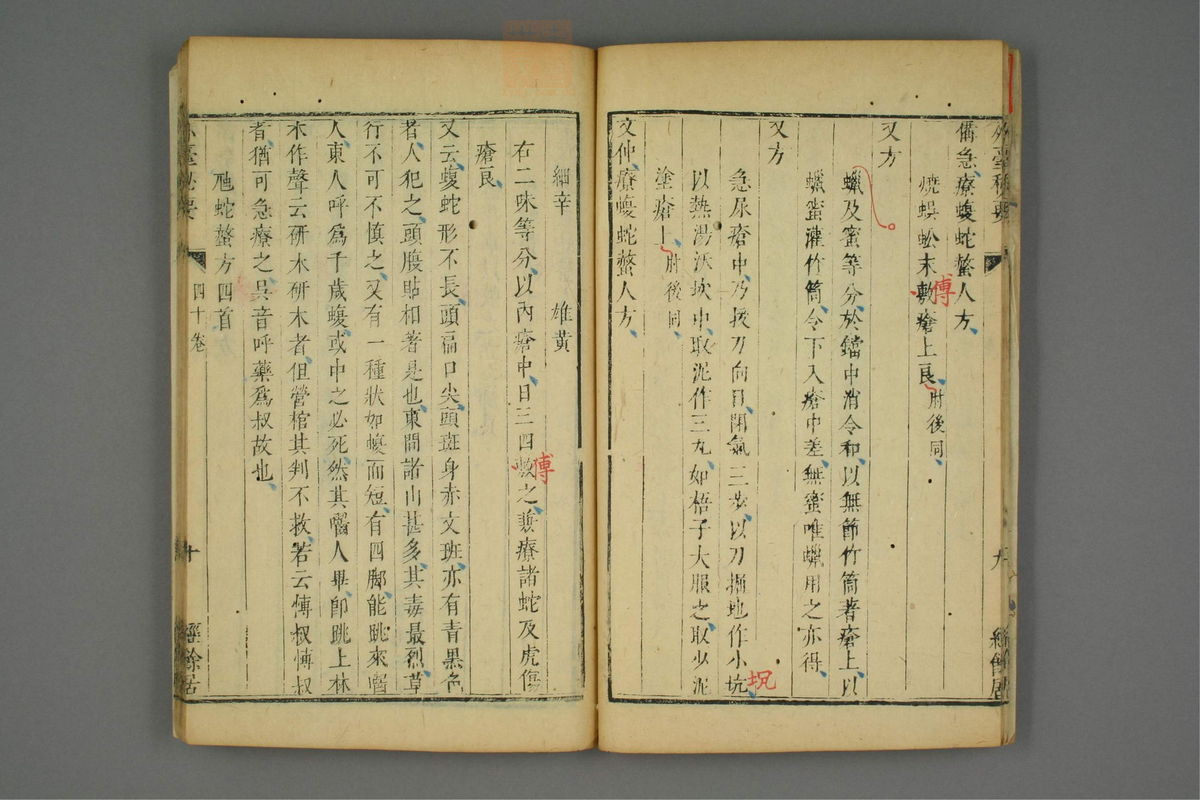 外臺秘要
九
經餘居
備急療蝮蛇螫人方
燒蜈蚣末敷瘡上良肘後同
傅
又方
蠟及蜜等分於鐺中消令和以無節竹筒著瘡上以
蠟蜜灌竹筒令下入瘡中差無蜜唯蠟用之亦得
又方
急尿瘡中乃拔刀向日閉氣三步以刀掘地作小坑
坑
以熱湯沃坎中取泥作三丸如梧子大服之取少泥
塗瘡上肘後同
文仲療蝮蛇螫人方
細辛 雄黃
右二味等分以內瘡中日三四敷之兼療諸蛇及虎傷
傅
瘡良
又云蝮蛇形不長頭扁口尖頭斑身赤文班亦有青黑色
者人犯之頭腹貼相著是也東間諸山甚多其毒最烈草
行不可不慎之又有一種狀如蝮而短有四脚能跳來囓
人東人呼爲千歲蝮或中之必死然其囓人畢即跳上林
木作聲云斫木斫木者但營棺其判不救若云慱叔慱叔
者猶可急療之吳音呼藥爲叔故也
虺蛇螫方四首
外臺祕要
四十卷
十
經餘居